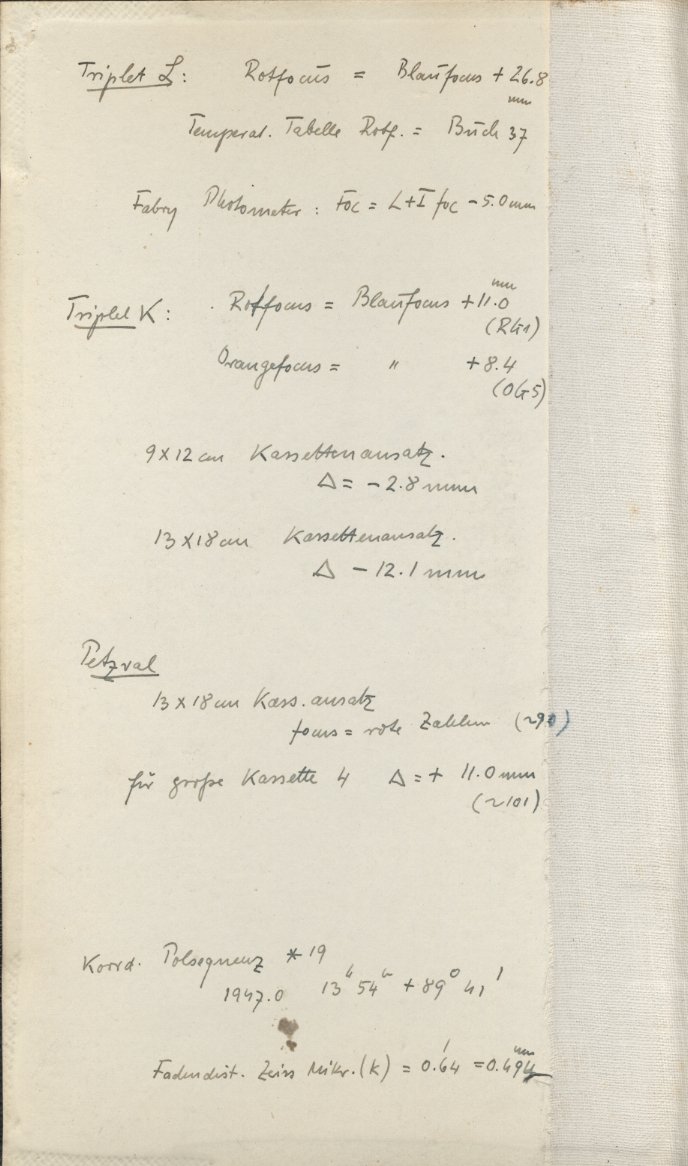 Triplet L: Rotfocus = Blaufocus + 26.8 mm
Temperat. Tabelle Rotf. = Buch 37
Fabry Photometer: Foc = L+I foc - 5.0 mm
Triplet K: Rotfocus = Blaufocus + 11.0 mm
(RG1)
Orangefocus = " + 8.4
(OG5)
9 x 12 cm Kassettenansatz.
Δ = - 2.8 mm
13 x 18 cm Kassettenansatz.
Δ - 12.1 mm
Petzval
13 x 18 cm Kass. ansatz
focus = rote Zahlen (~90)
für große Kassette 4 Δ = + 11.0 mm
(~101)
Koord. Polsequenz * 19
1947.0 13h 54m + 89° 41'
Fadendist. Zeiss Mikr. (K) = 0.'64 = 0.494 mm